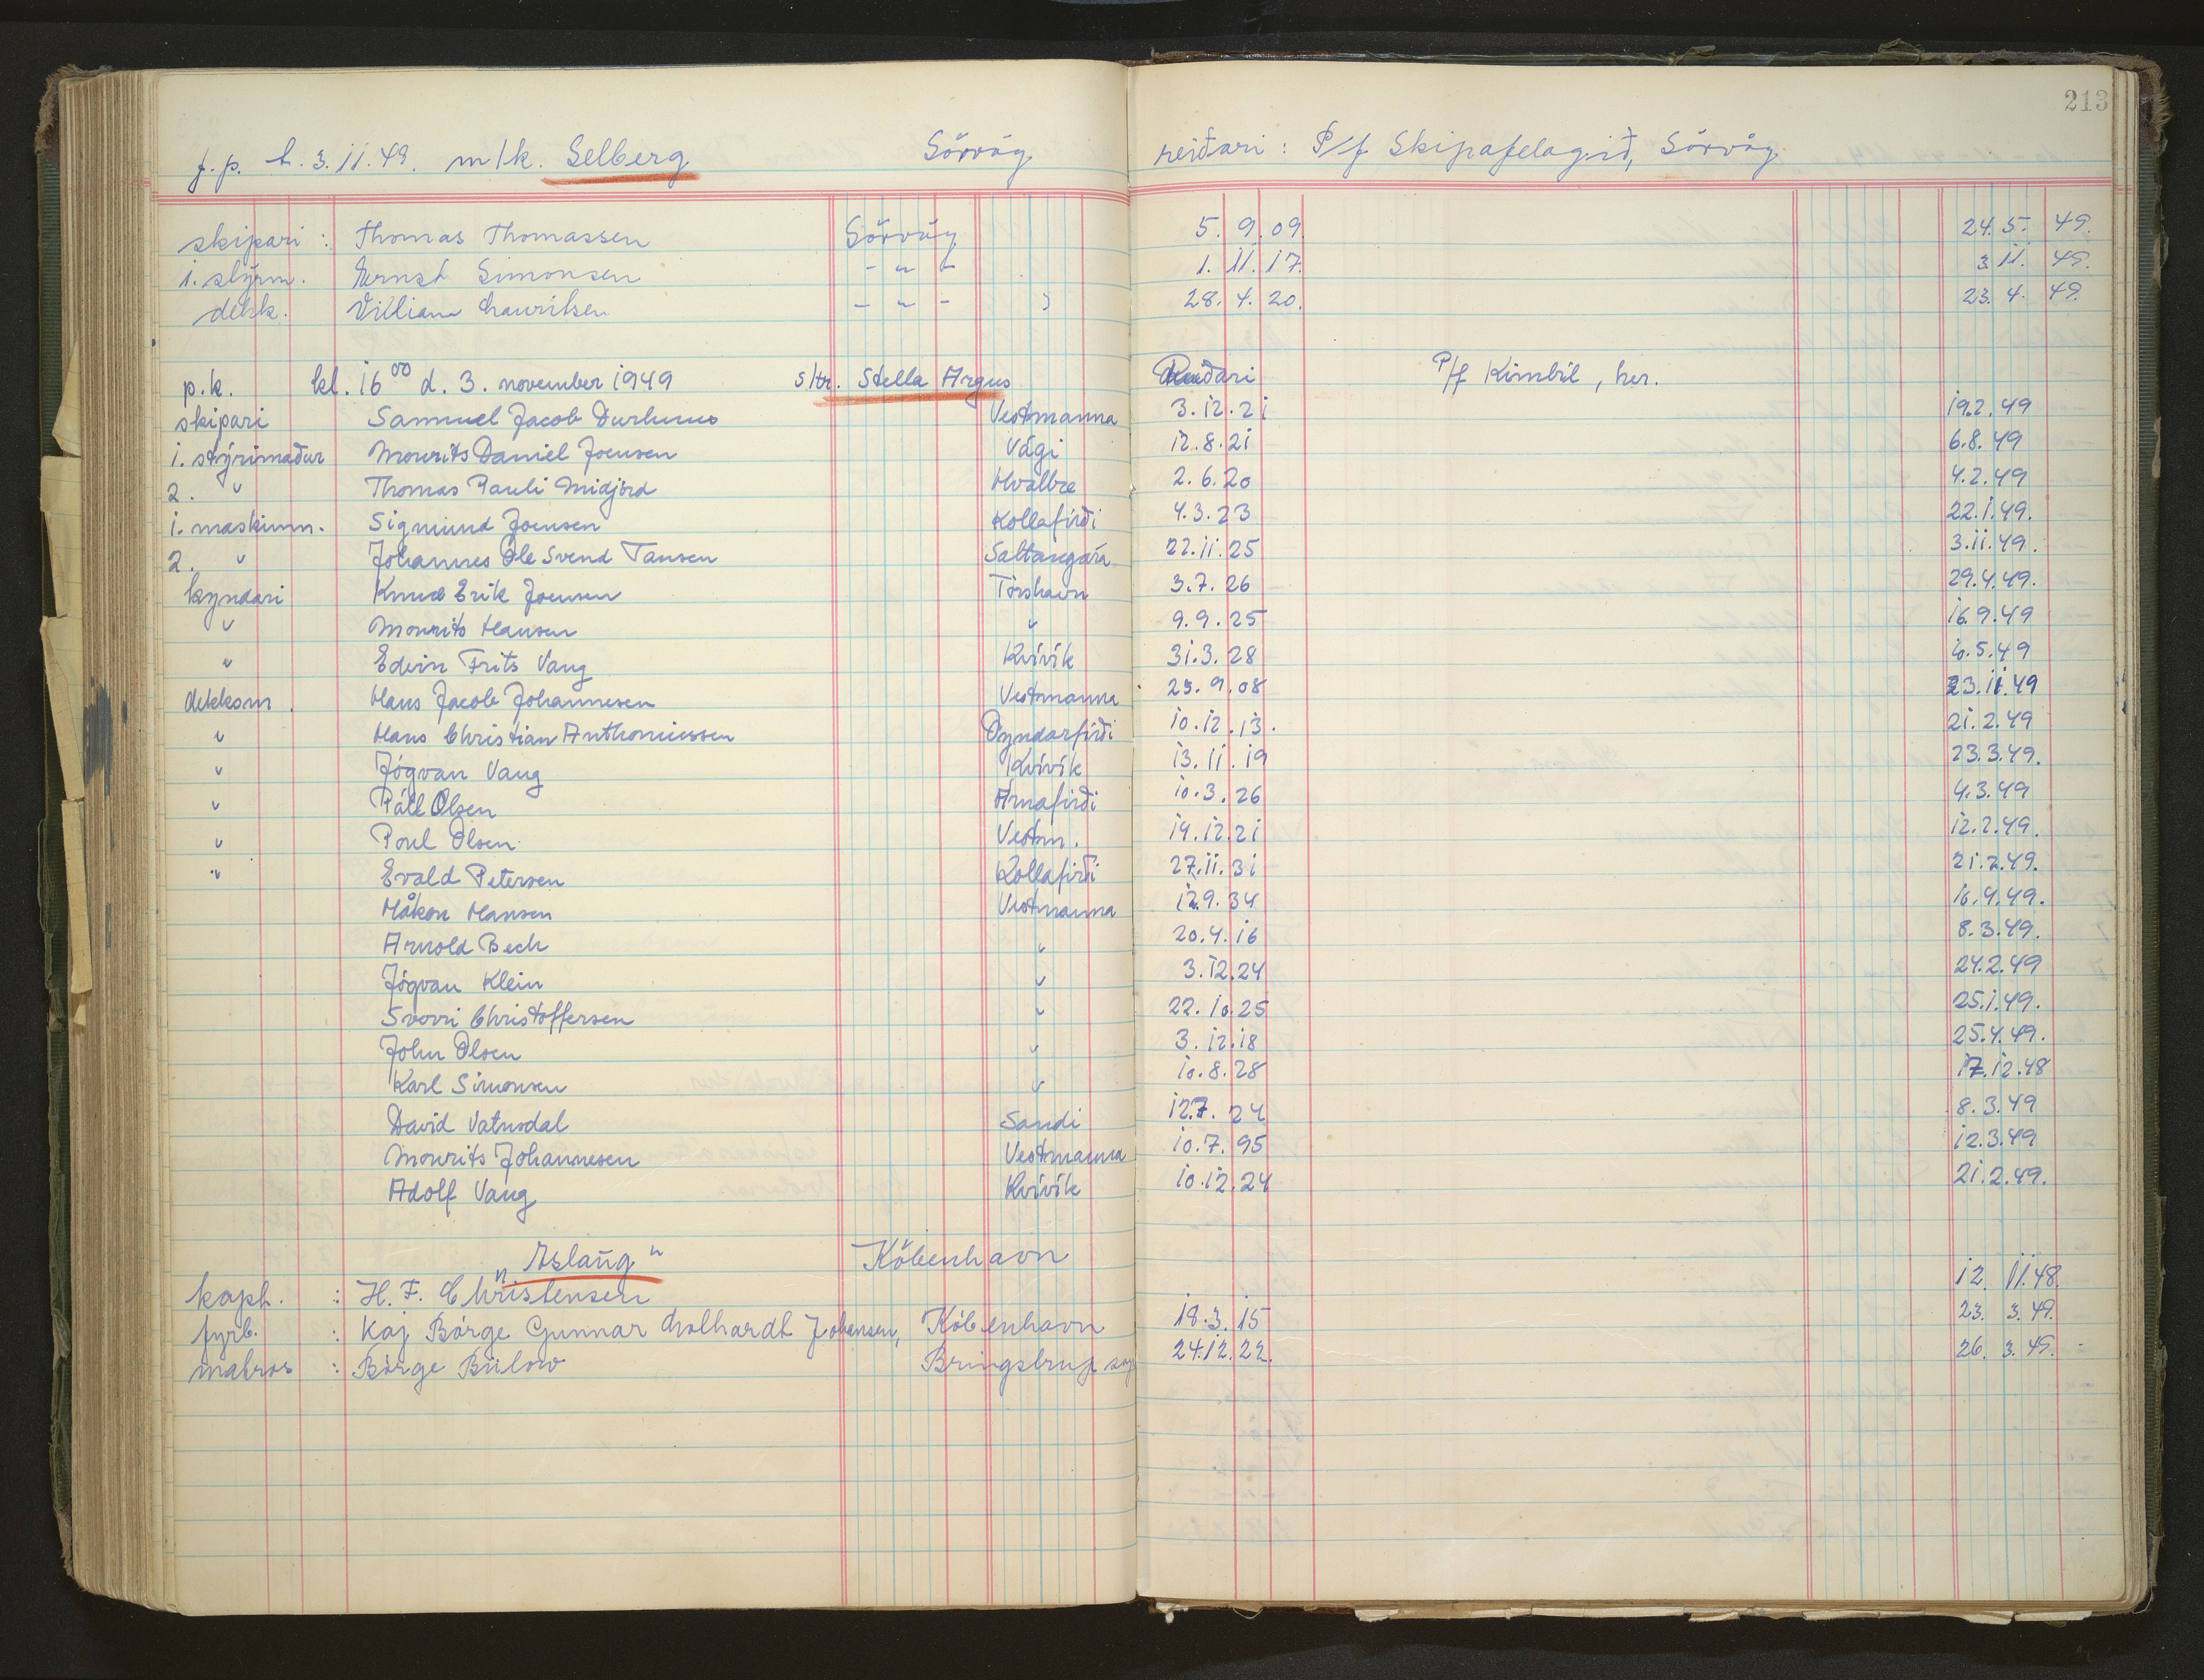 213
f.p. h. 3.11.49. m/k. Selberg Sörvág reiðari: P/f Skipafelagið, Sörvág
skipari : Thomas Thomassen Sörvág 5. 9. 09. 24. 5. 49.
1. stýrm. Ernst Simonsen - " - 1. 11. 17. 3. 11. 49.
dekk. William Lauritsen - " - 28. 4. 20. 23. 4. 49.
p.k. kl. 16 00 d. 3. november 1949 s/tr. Stella Argus Reiðari P/f Kimbil, her.
skipari Samuel Jacob Durhuus Vestmanna 3.12.21 19.2.49
1. stýrimaður Mourits Daniel Joensen Vági 12.8.21 6.8.49
2. " Thomas Pauli Midjord Hvalbæ 2.6.20 4.2.49
1. maskinm. Sigmund Joensen Kollafirði 4.3.23 22.1.49.
2. " Johannes Ole Svend Tausen Saltangará 22.11.25 3.11.49.
kyndari Knud Erik Joensen Tórshavn 3.7.26 29.4.49.
" Mourits Hansen " 9.9.25 16.9.49
" Edvin Frits Vang Kvívík 31.3.28 6.5.49
dekksm. Hans Jacob Johannesen Vestmanna 25.9.08 23.11.49
" Hans Christian Anthoniussen Oyndarfirði 10.12.13. 21.2.49
" Jógvan Vang Kvívík 13.11.19 23.3.49.
" Páll Olsen Árnafirði 10.3.26 4.3.49
" Poul Olsen Vestm. 14.12.21 12.2.49.
" Evald Petersen Kollafirði 27.11.31 21.2.49.
Håkon Hansen Vestmanna 12.9.34 16.4.49.
Arnold Bech " 20.4.16 8.3.49.
Jógvan Klein " 3.12.24 24.2.49
Sverri Christoffersen " 22.10.25 25.1.49.
John Olsen " 3.12.18 25.4.49.
Karl Simonsen " 10.8.28 17.12.48
David Vatnsdal Sandi 12.7.24 8.3.49
Mourits Johannesen Vestmanna 10.7.95 12.3.49
Adolf Vang Kvívík 10.12.24 21.2.49.
"Aslaug" Köbenhavn
kapt. : H. F. Christensen 12. 11.48.
fyrb. : Kaj Börge Gunnar Johansen, Köbenhavn 18.3.15 23. 3.49.
matros : Börge Bülow Bringstrup 24.12.22. 26. 3.49.